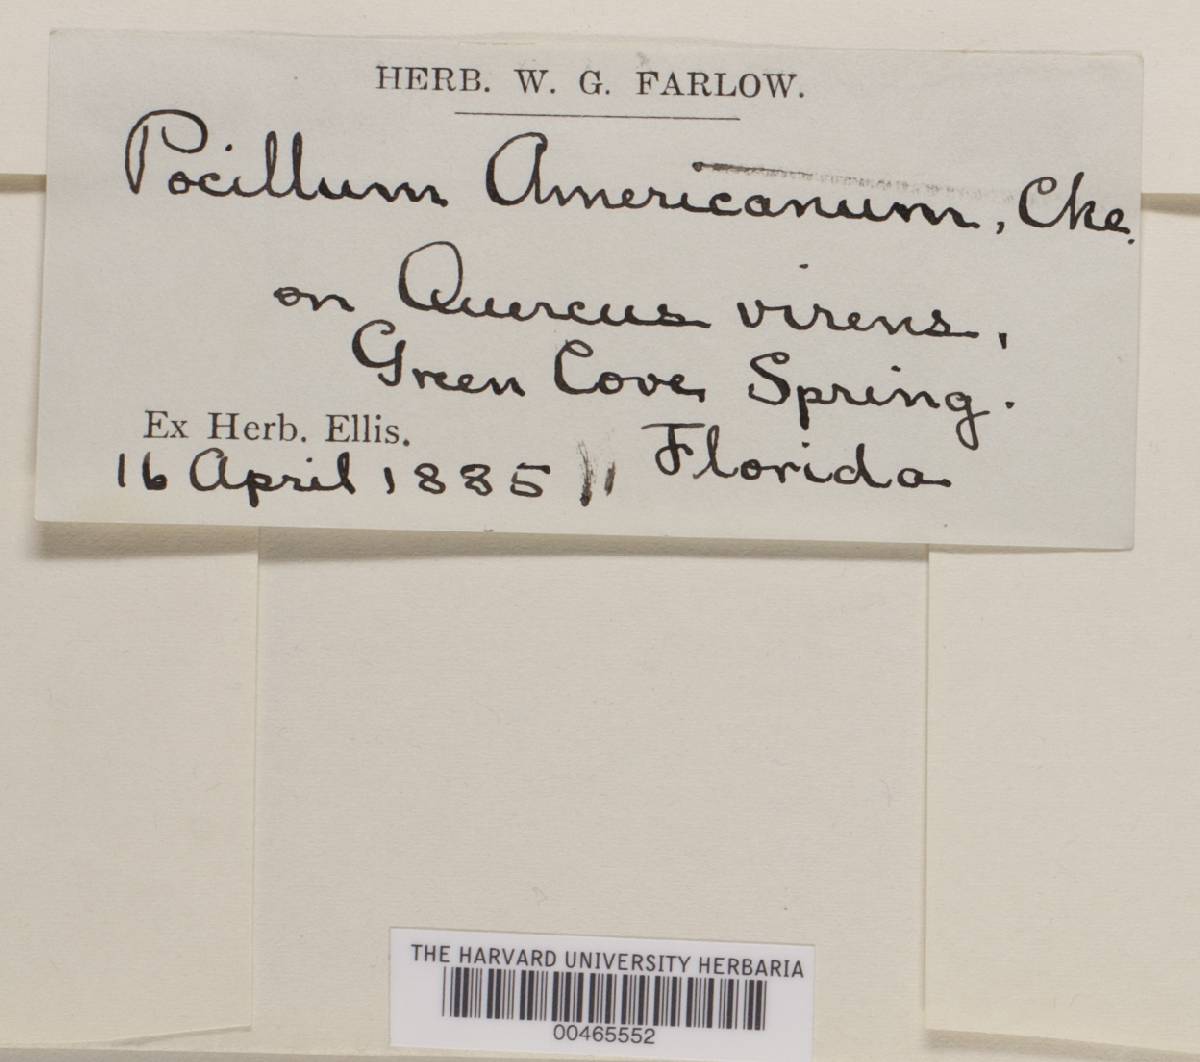 HERB. W. G. FARLOW.
Pocillum Americanum, Cke.
on Quercus virens,
Green Cove Spring.
Ex Herb. Ellis.
Florida
16 April 1885
THE HARVARD UNIVERSITY HERBARIA
00465552